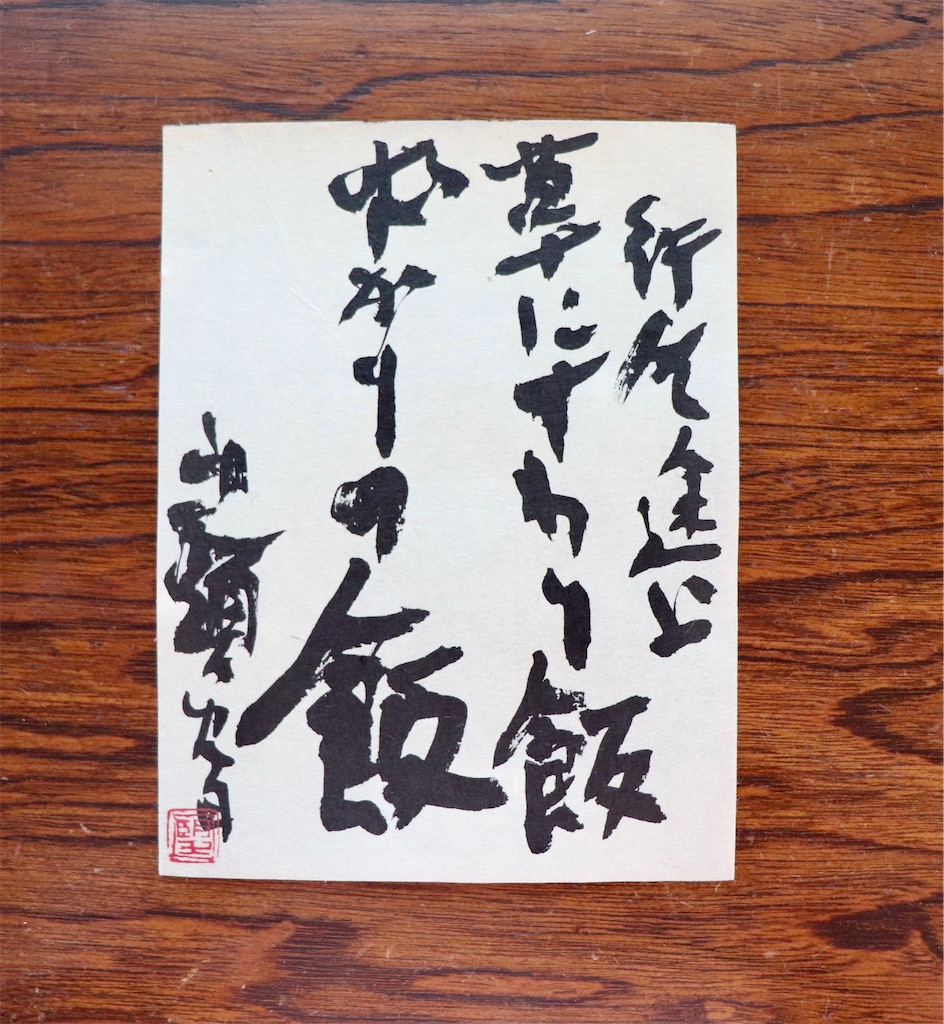 行乞途上
草にすわり飯
ばかりの飯
山頭火